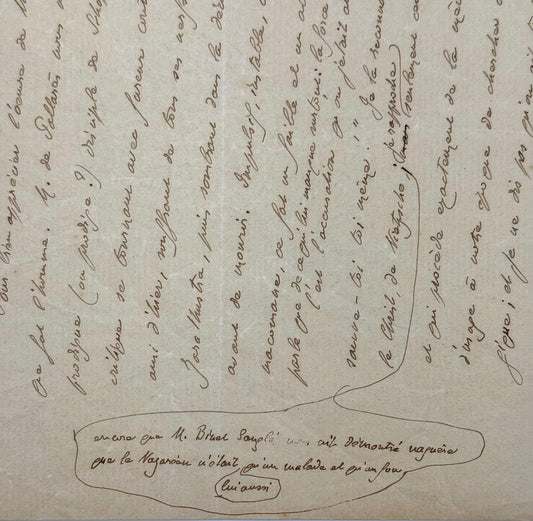 bien apprécier l'œuvre de
que fut l'homme. M. de Pallarès nous
prodigue (ou prodige ?) disciple de Scho
critique se tournant avec fureur
ami d'hier, souffrant de tous ses
Zarathustra, puis sombrant dans la
avant de mourir. Impulsif, instable,
ce fut un faible et un
parle que de ce qui lui manque surtout : la force
C'est l'accusation qu'on jetait
sauve-toi toi même ! " Je la
le Christ, de Nietzsche, je rapproche
et qui procède exactement de la
d'usage à notre époque de chercher
et je ne dis pas qu'on ait
encore que M. Binet Sanglé nous ait démontré naguère
que le Nazaréen n'était qu'un malade et qu'un fou,
lui aussi